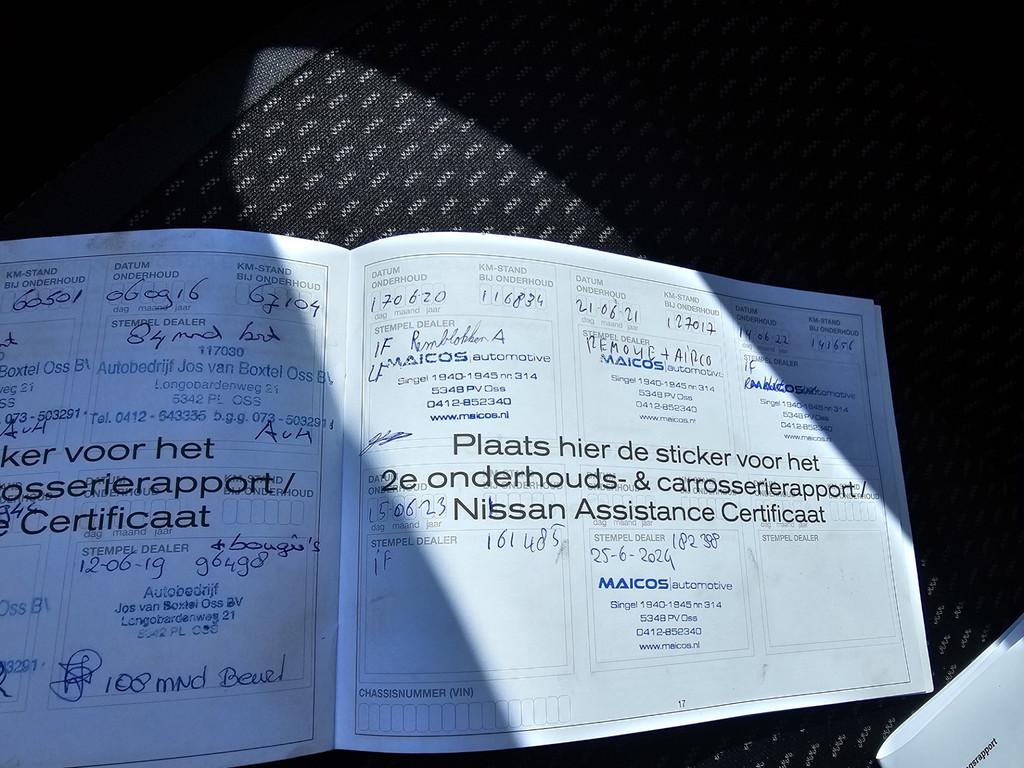 KM-STAND
BIJ ONDERHOUD
60501
DATUM
ONDERHOUD
060916
dag maand jaar
KM-STAND
BIJ ONDERHOUD
67104
STEMPEL DEALER
84 mnd brt
117030
Boxtel Oss BV
Autobedrijf Jos van Boxtel Oss BV
Longobardenweg 21
5342 PL OSS
073-503291
Tel. 0412 - 643335 b.g.g. 073-503291
ker voor het
osserierapport/
Certificaat
STEMPEL DEALER
+ bougie's
12-06-19 96498
Autobedrijf
Jos van Boxtel Oss BV
Longobardenweg 21
5342 PL OSS
108 mnd Beurt
DATUM
ONDERHOUD
170620
dag maand jaar
KM-STAND
BIJ ONDERHOUD
116834
STEMPEL DEALER
IF Remblokken A
MAICOS automotive
Singel 1940-1945 nr. 314
5348 PV Oss
0412-852340
www.maicos.nl
DATUM
ONDERHOUD
21-06-21
dag maand jaar
KM-STAND
BIJ ONDERHOUD
127017
STEMPEL DEALER
REMOLIE + AIRCO
MAICOS automotive
Singel 1940-1945 nr. 314
5348 PV Oss
0412-852340
www.maicos.nl
DATUM
ONDERHOUD
14-06-22
dag maand jaar
KM-STAND
BIJ ONDERHOUD
STEMPEL DEALER
IF
automotive
Singel 1940-1945 nr. 314
5348 PV Oss
0412-852340
www.maicos.nl
Plaats hier de sticker voor het
2e onderhouds- & carrosserierapport/
Nissan Assistance Certificaat
15-06-23
dag maand jaar
STEMPEL DEALER
161485
IF
dag maand jaar
STEMPEL DEALER
182398
25-6-2024
MAICOS automotive
Singel 1940-1945 nr. 314
5348 PV Oss
0412-852340
www.maicos.nl
dag maand jaar
STEMPEL DEALER
CHASSISNUMMER (VIN)
17